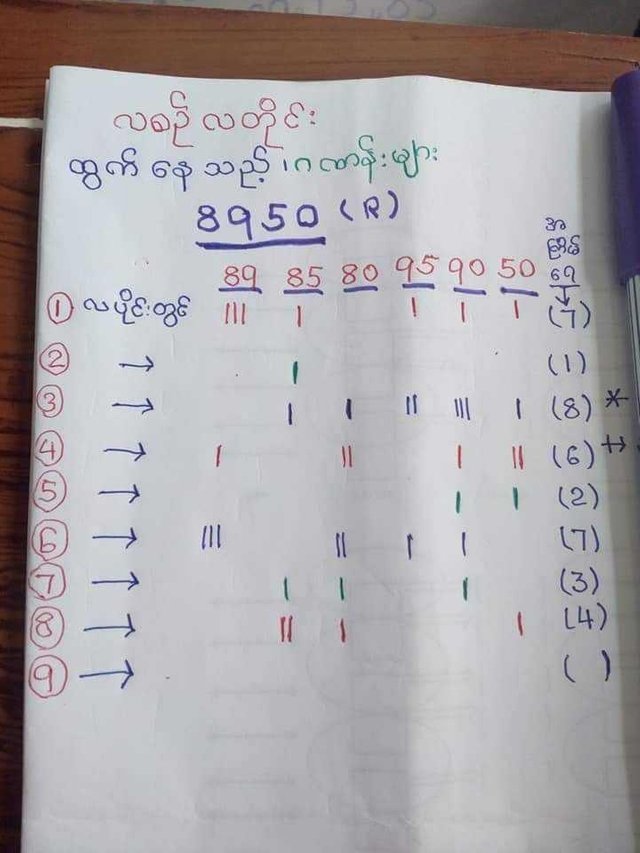 လစဉ် လတိုင်း
ထွက် နေ သည့် ဂဏာန်းများ
8950 (R)
အ
ကြိမ်
ရေ
89 85 80 95 90 50
① လပိုင်းတွင် III I I I I (7)
② → I (1)
③ → I I II III I (8) *
④ → I II I II (6) ++
⑤ → I I (2)
⑥ → III II I I (7)
⑦ → I I I (3)
⑧ → II I I (4)
⑨ → ( )